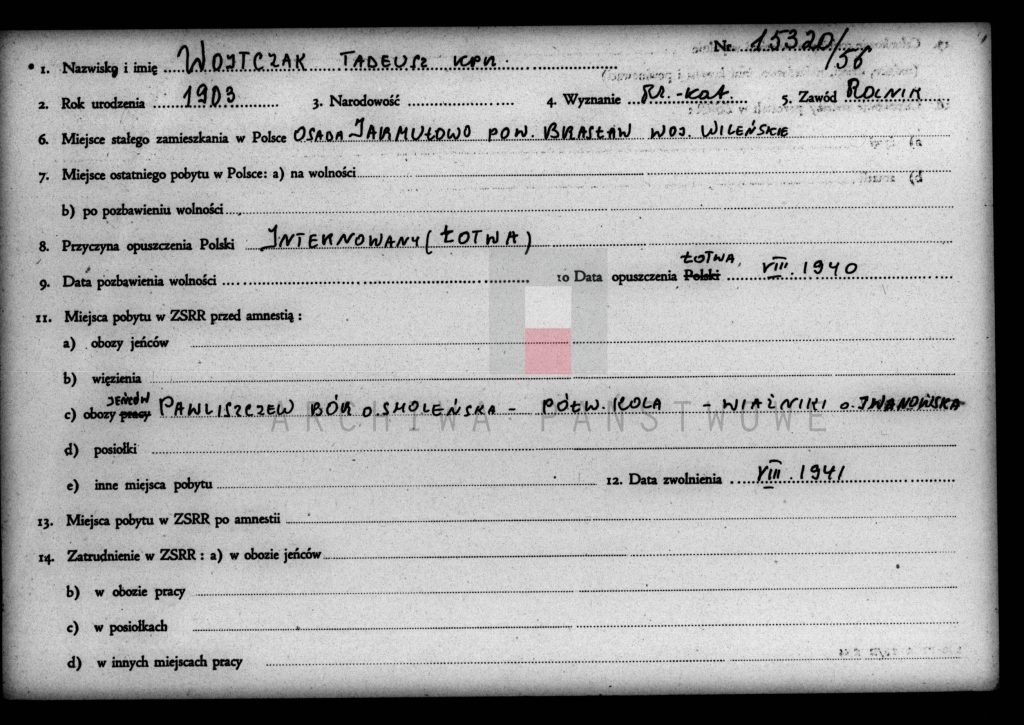 Nr. 15320/56
1. Nazwisko i imię WOJTCZAK TADEUSZ KPR.
2. Rok urodzenia 1903 3. Narodowość 4. Wyznanie Rz.-kat. 5. Zawód ROLNIK
6. Miejsce stałego zamieszkania w Polsce OSADA JARMUŁOWO POW. BRASŁAW WOJ. WILEŃSKIE
7. Miejsce ostatniego pobytu w Polsce: a) na wolności
b) po pozbawieniu wolności
8. Przyczyna opuszczenia Polski INTERNOWANY (ŁOTWA)
9. Data pozbawienia wolności 10 Data opuszczenia Polski ŁOTWA, VIII. 1940
11. Miejsca pobytu w ZSRR przed amnestią :
a) obozy jeńców
b) więzienia
c) obozy pracy JEŃCÓW PAWLISZCZEW BÓR O. SMOLEŃSKA - PÓŁW. KOLA - WIAŹNIKI O. IWANOWSKA
ARCHIWA PAŃSTWOWE
d) posiołki
e) inne miejsca pobytu 12. Data zwolnienia VIII. 1941
13. Miejsca pobytu w ZSRR po amnestii
14. Zatrudnienie w ZSRR : a) w obozie jeńców
b) w obozie pracy
c) w posiołkach
d) w innych miejscach pracy